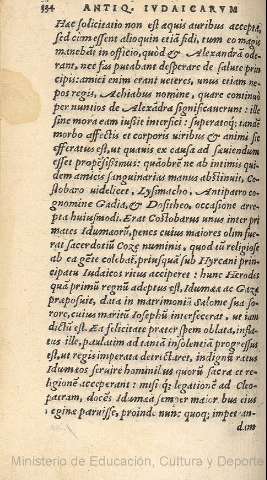 334 ANTIQ. IVDAICARVM
Hæc solicitatio non est æquis auribus acceptā,
sed cùm essent alioquin etiā fidi, tum eo magis
manebāt in officio, quòd & Alexandrā ode
rant, nec fas putabant desperare de salute prin
cipis: amici enim erant veteres, vnus etiam ne-
pos regis, Achiabus nomine, quare continuò
per nuntios de Alexādra significauerunt: ille
sine mora eam iussit interfici: superatoq́; tandē
morbo affectis et corporis viribus & animi sic
efferatus est, ut quauis ex causa ad sæuiendum
esset propēsissimus: quāobrē ne ab intimis qui-
dem amicis sanguinarias manus abstinuit, Co-
stobaro videlicet, Lysimacho, Antiparo co-
gnomine Gadia, & Dositheo, occasione arre-
pta huiusmodi. Erat Costobarus vnus inter pri
mates Idumæorū, penes cuius maiores olim fue
rat sacerdotiū Cozæ numinis, quod eū religiose
ab ea gēte colebat, priusquā sub Hyrcani prin-
cipatu Iudaicos ritus acciperet: hunc Herodes
quā primū regnū adeptus est, Idumææ ac Gazæ
præposuit, data in matrimoniū Salome sua so-
rore, cuius maritū Iosephū interfecerat, ut iam
dictū est. Ea felicitate præter spem oblata, infla
tus ille, paulatim ad tantā insolentiā progressus
est, ut regis imperata detrectaret, indignū ratus
Idumæos seruire hominibus quorū sacra et re-
ligionē acceperant: misit q́; legationē ad Cleo-
patram, docēs Idumæā semper maioribus eius
regiæ paruisse, proinde nunc quoq; impetran-
dam
Ministerio de Educación, Cultura y Deporte